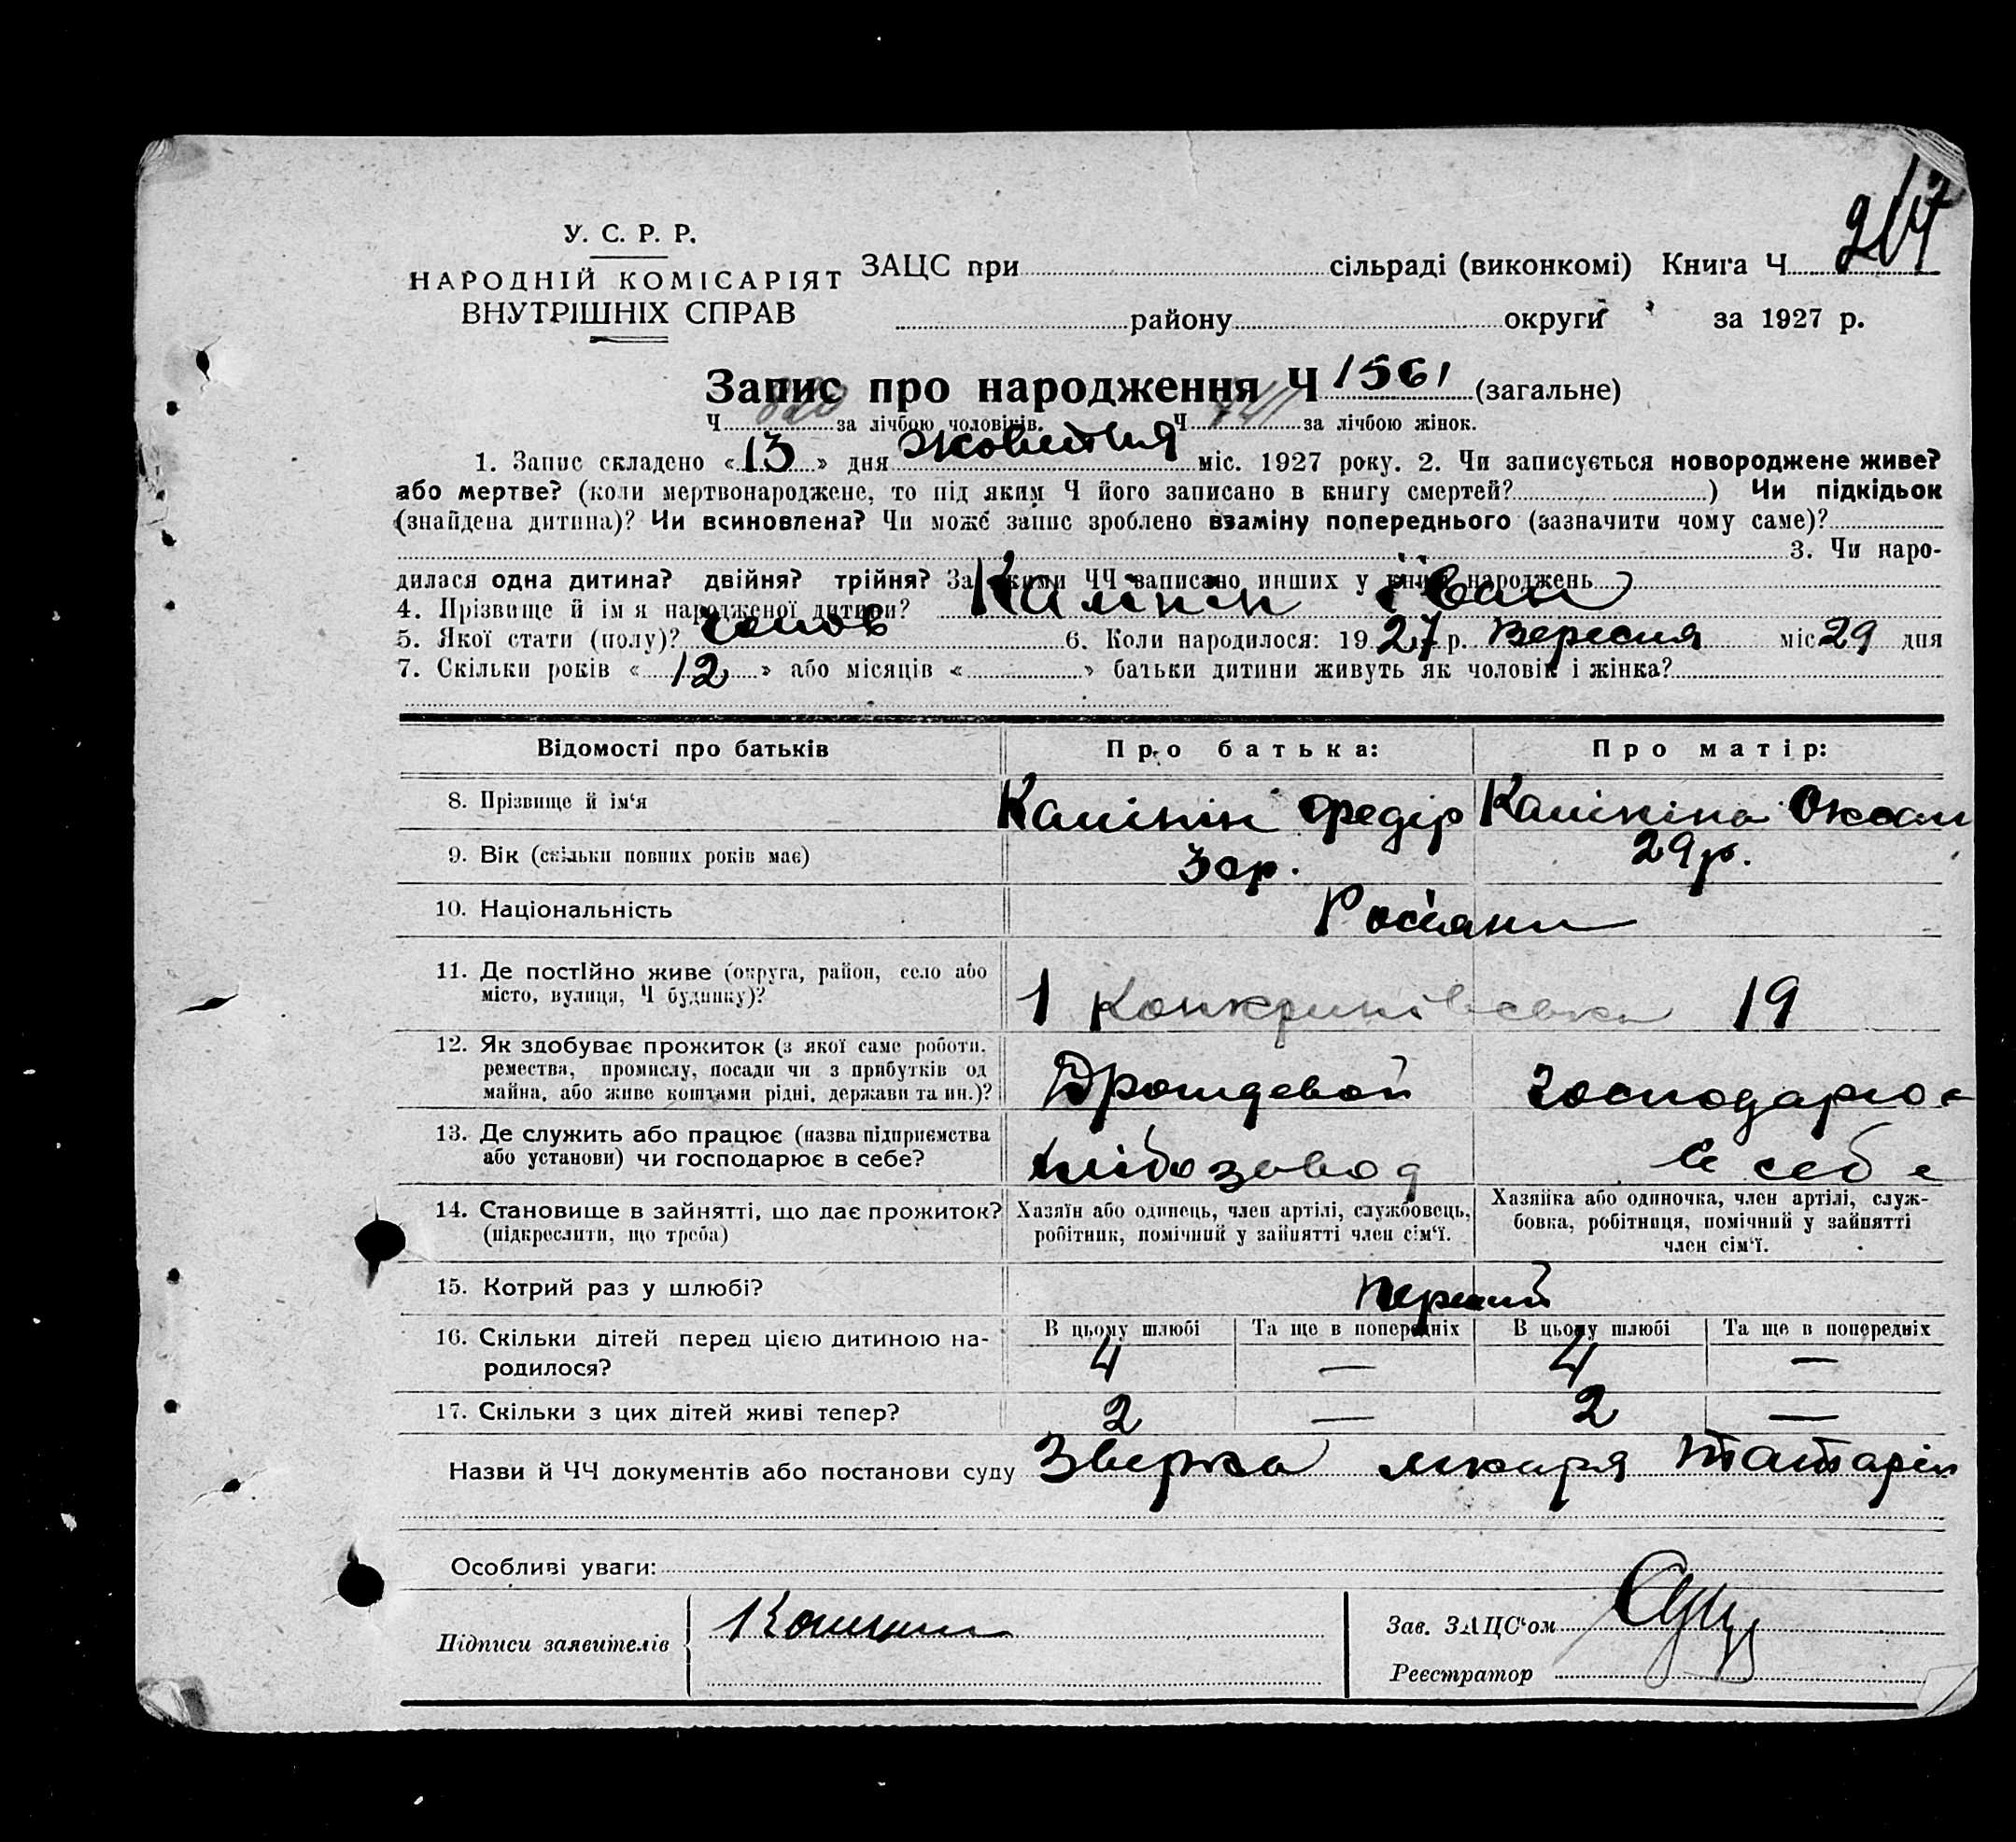 217
У. С. Р. Р.
НАРОДНІЙ КОМІСАРІЯТ
ВНУТРІШНІХ СПРАВ
ЗАЦС при сільраді (виконкомі) Книга Ч
району округи за 1927 р.
Запис про народження Ч 1561 (загальне)
Ч 820 за лічбою чоловіків. Ч за лічбою жінок.
1. Запис складено «13» дня жовтня міс. 1927 року. 2. Чи записується новороджене живе?
або мертве? (коли мертвонароджене, то під яким Ч його записано в книгу смертей? ) Чи підкідьок
(знайдена дитина)? Чи всиновлена? Чи може запис зроблено взаміну попереднього (зазначити чому саме)?
3. Чи наро-
дилася одна дитина? двійня? трійня? За якими ЧЧ записано инших у книзі народжень
4. Прізвище й ім я народженої дитини? Калінін Іван
5. Якої стати (полу)? чолов 6. Коли народилося: 1927 р. Вересня міс 29 дня
7. Скільки років «12» або місяців « » батьки дитини живуть як чоловік і жінка?
Відомості про батьків Про батька: Про матір:
8. Прізвище й ім‘я Калінін Федір Калініна Оксан
9. Вік (скільки повних років має) 30р. 29р.
10. Національність Росіяни
11. Де постійно живе (округа, район, село або
місто, вулиця, Ч будинку)? 1 19
12. Як здобуває прожиток (з якої саме роботи,
ремества, промислу, посади чи з прибутків од
майна, або живе коштами рідні, держави та ин.)? господарює
13. Де служить або працює (назва підприємства
або установи) чи господарює в себе? хлібозавод в себе
14. Становище в зайнятті, що дає прожиток?
(підкреслити, що треба)
Хазяїн або одинець, член артілі, службовець,
робітник, помічний у зайнятті член сім‘ї.
Хазяйка або одиночка, член артілі, служ-
бовка, робітниця, помічний у зайнятті
член сім‘ї.
15. Котрий раз у шлюбі? перший
В цьому шлюбі Та ще в попередніх В цьому шлюбі Та ще в попередніх
16. Скільки дітей перед цією дитиною на-
родилося? 4 — 4 —
17. Скільки з цих дітей живі тепер? 2 — 2 —
Назви й ЧЧ документів або постанови суду лікаря Татарін
Особливі уваги:
Підписи заявителів Калинин
Зав. ЗАЦС‘ом
Реєстратор